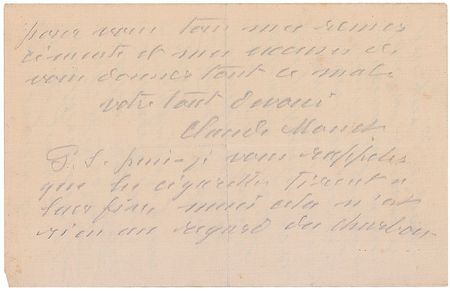 pour vous tous mes remer
ciements et mes excuses de
vous donner tout ce mal.
votre tout dévoué
Claude Monet
P. S. puis-je vous rappeler
que les cigarettes tirent à
leur fin, mais cela n'est
rien au regard du charbon